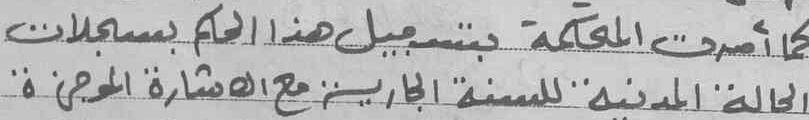 كما أمرت المحكمة بتسجيل هذا الحكم بسجلات
الحالة المدنية للسنة الجارية مع الاشارة الموجزة